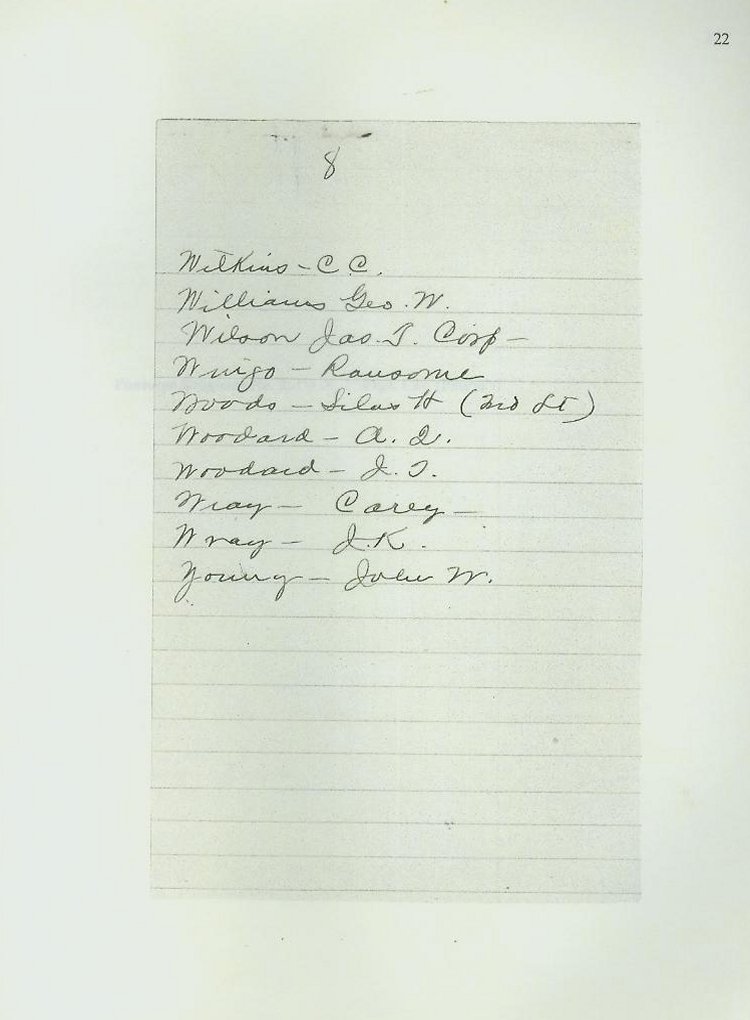 22
8
Wilkins - C C.
Williams Geo. W.
Wilson Jas. T. Corp -
Wingo - Ransome
Woods - Silas H (2nd Lt)
Woodard - A. Q.
Woodard - J. T.
Wray - Carey -
Wray - J. K.
Young - John W.